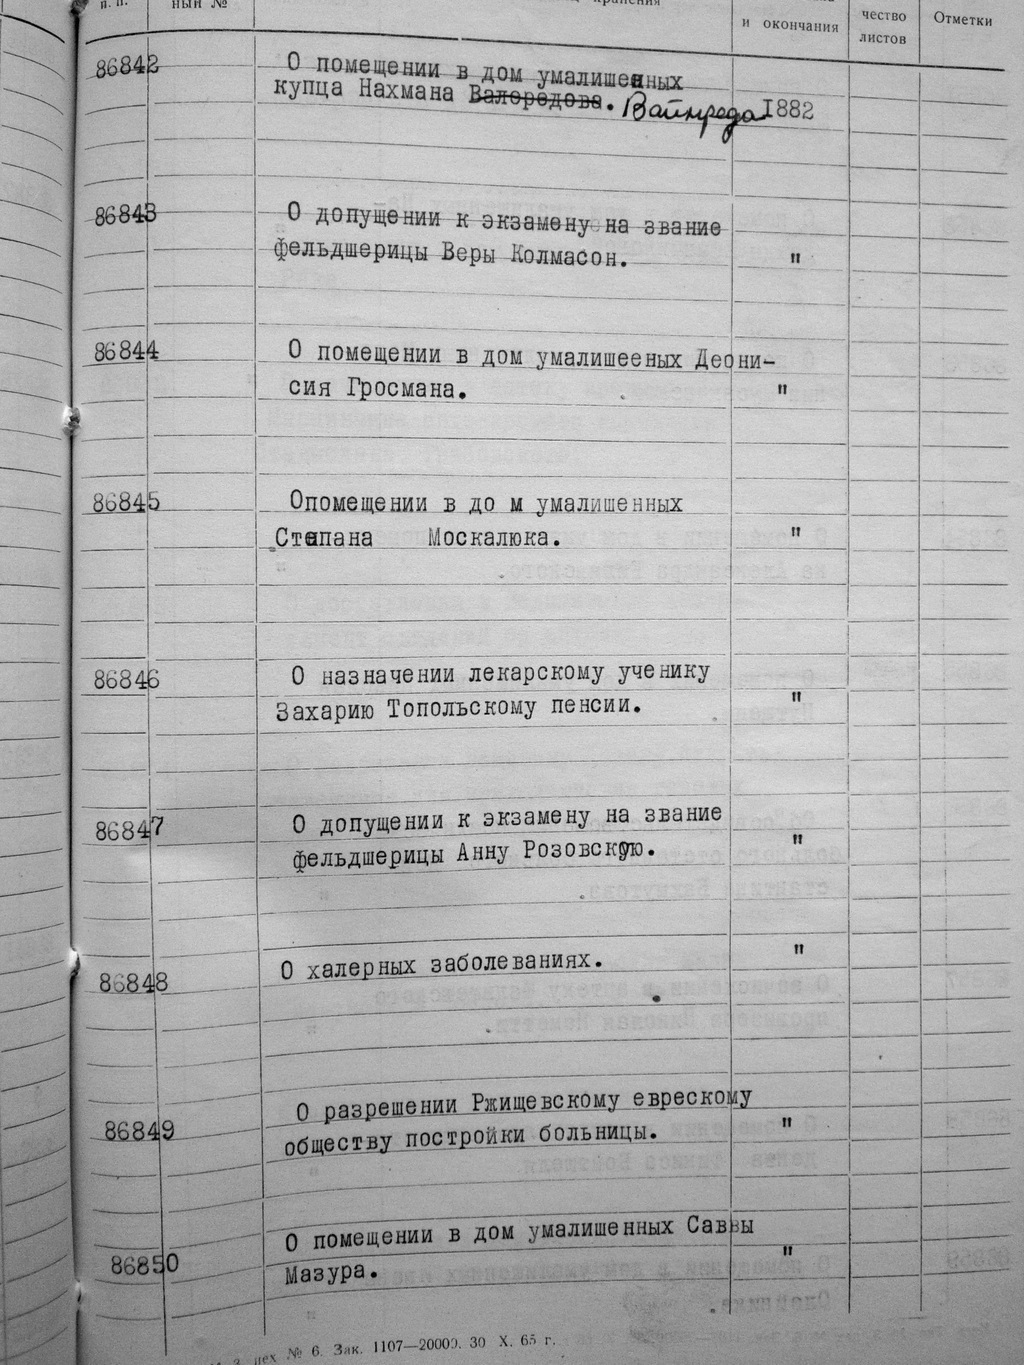 п. п.
ный №
хранения
и окончания
чество
листов
Отметки
86842 О помещении в дом умалишенных
купца Нахмана Валеродова. Вайнреда 1882
86843 О допущении к экзамену на звание
фельдшерицы Веры Колмасон. "
86844 О помещении в дом умалишееных Деони-
сия Гросмана. "
86845 Опомещении в до м умалишенных
Степана Москалюка. "
86846 О назначении лекарскому ученику
Захарию Топольскому пенсии. "
86847 О допущении к экзамену на звание
фельдшерицы Анну Розовскую. "
86848 О халерных заболеваниях. "
86849 О разрешении Ржищевскому еврескому
обществу постройки больницы. "
86850 О помещении в дом умалишенных Саввы
Мазура. "
цех № 6. Зак. 1107—20000. 30 X. 65 г.